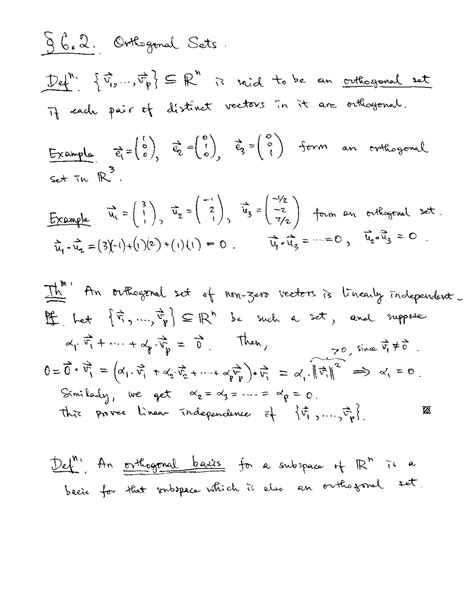 § 6.2. Orthogonal Sets.
Defⁿ: {v⃗₁,...,v⃗ₚ} ⊆ ℝⁿ is said to be an orthogonal set
if each pair of distinct vectors in it are orthogonal.
Example e⃗₁=(1 0 0), e⃗₂=(0 1 0), e⃗₃=(0 0 1) form an orthogonal
set in ℝ³.
Example u⃗₁=(3 1 1), u⃗₂=(-1 2 1), u⃗₃=(-1/2 -2 7/2) form an orthogonal set.
u⃗₁·u⃗₂ = (3)(-1)+(1)(2)+(1)(1) = 0. u⃗₁·u⃗₃ = ... = 0, u⃗₂·u⃗₃ = 0.
Thᵐ: An orthogonal set of non-zero vectors is linearly independent.
Pf. Let {v⃗₁,...,v⃗ₚ} ⊆ ℝⁿ be such a set, and suppose
α₁·v⃗₁+····+αₚ·v⃗ₚ = 0⃗. Then,
>0, since v⃗₁≠0⃗.
0=0⃗·v⃗₁=(α₁·v⃗₁+α₂·v⃗₂+···+αₚv⃗ₚ)·v⃗₁ = α₁·‖v⃗₁‖² ⟹ α₁=0.
Similarly, we get α₂=α₃=····=αₚ=0.
This proves linear independence of {v⃗₁,...,v⃗ₚ}.
Defⁿ: An orthogonal basis for a subspace of ℝⁿ is a
basis for that subspace which is also an orthogonal set.